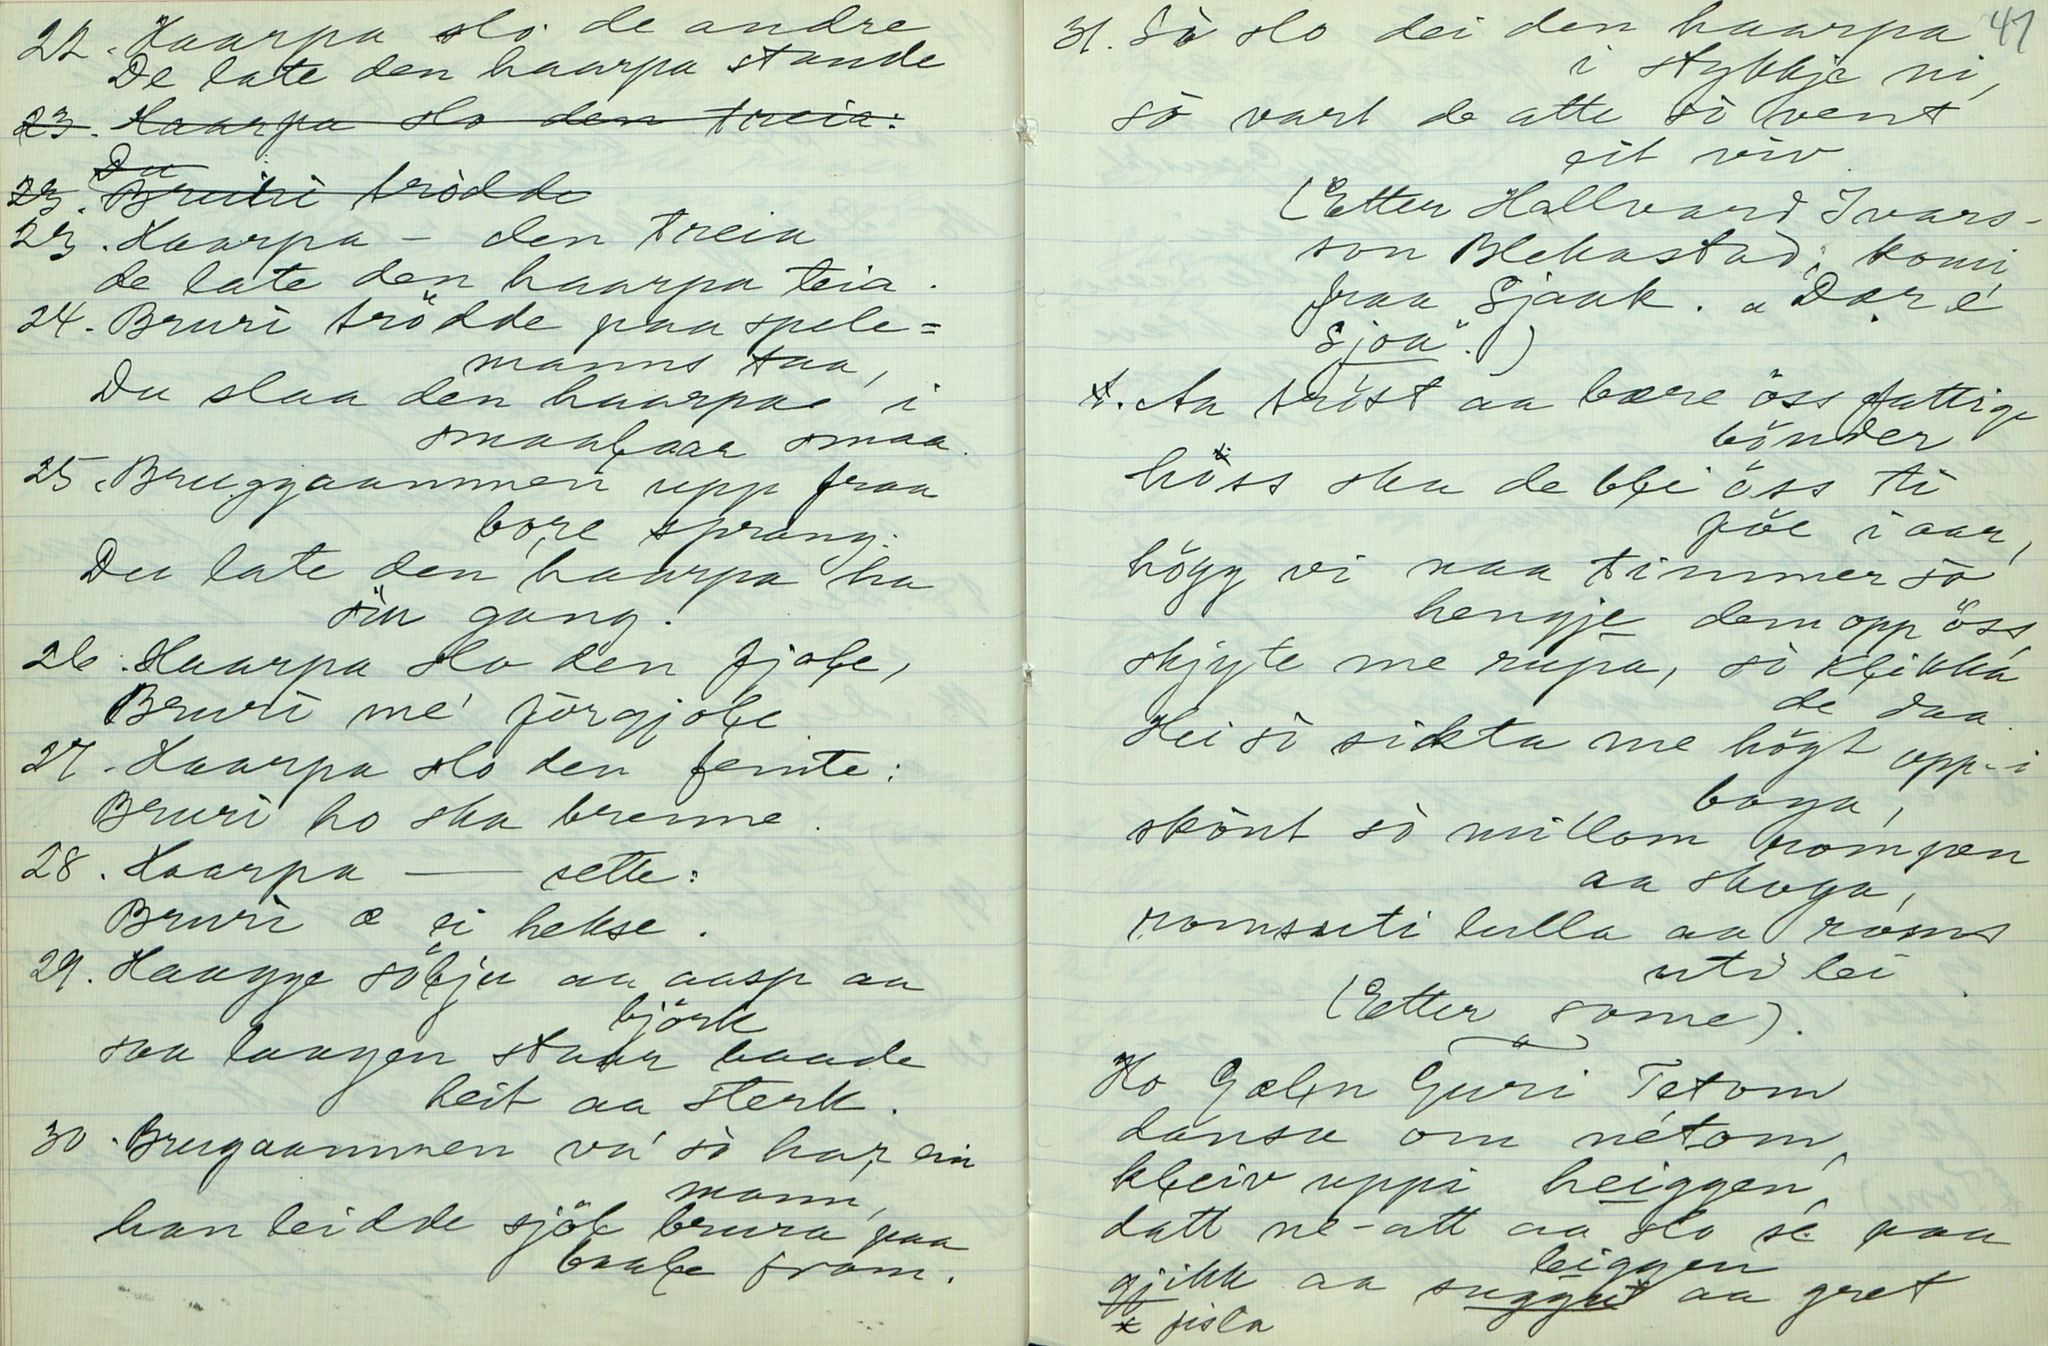 22. Haarpa slo de andre
De late den haarpa stande
23. Haarpa slo den treia:
Du
23. Bruri trödde
23. Haarpa – den treia
de late den haarpa teia.
24. Bruri trödde paa spele=
manns taa,
Du slaa den haarpa i
smaalaar smaa.
25. Bruggaammen upp fraa
bore sprang:
Du late den haarpa ha
sin gang.
26. Haarpa slo den fjole,
Bruri me' förgjole
27. Haarpa slo den femte:
Bruri ho ska brenne.
28. Haarpa — sette:
Bruri æ ei hekse.
29. Haagge sölju aa aasp aa
björk
saa laagen staar baade
heit aa sterk.
30. Brugaammen va' so har ein
mann,
han leidde sjöl brura paa
baale fram.
41
31. So slo dei den haarpa
i stykkje ni,
so vart de atte so vent
eit viv
(Etter Hallvard Ivars-
son Blekastad; komi
fraa Sjaak. "Dær é
Sjoa".)
t. Aa tröst aa bære öss fattige
bönder
höss ska de bli öss ti
föe i aar,
högg vi naa timmer so
hengje dem opp öss
skjyte me rupa, so klikka
de daa
Hei so sikta me högt upp-i
baga,
skönt so millom rompen
aa skaga,
romsuti lulla aa roms
uti lei.
(Etter same).
Ho Galen Guri Tetom
dansa om netom
kleiv uppi heiggen,
datt ne-att aa slo se paa
leiggen
gjikk aa suggu aa gret
x fisla